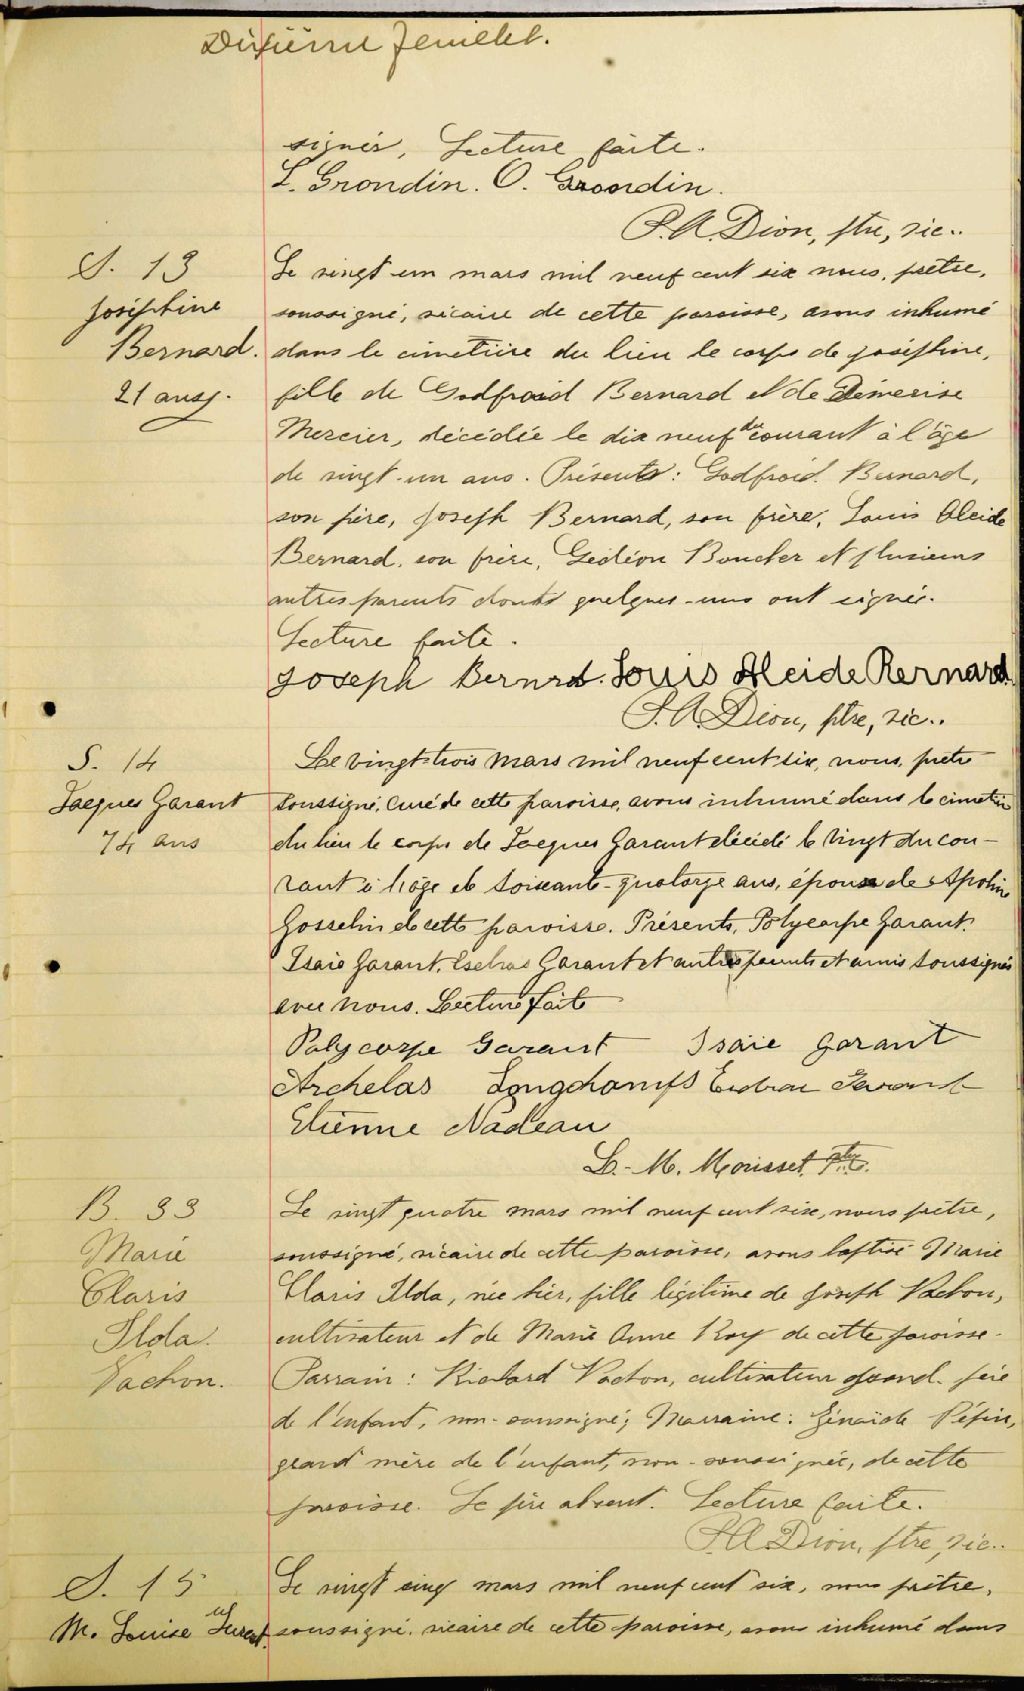 Dixième feuillet.
signés, Lecture faite.
L. Grondin. O. Grondin.
P.A. Dion, ptre, vic..
S. 13
Joséphine
Bernard.
21 ans.
Le vingt-un mars mil neuf cent six nous, prêtre,
soussigné, vicaire de cette paroisse, avons inhumé
dans le cimetière du lieu le corps de Joséphine,
fille de Godfroid Bernard et de Démerise
Mercier, décédée le dix neuf du courant à l'âge
de vingt-un ans. Présents: Godfroid Bernard,
son père, Joseph Bernard, son frère, Louis Alcide
Bernard, son frère, Gédéon Boucher et plusieurs
autres parents dont quelques-uns ont signés.
Lecture faite.
Joseph Bernard. Louis Alcide Bernard.
P.A. Dion, ptre, vic..
S. 14
Jacques Garant
74 ans
Le vingt-trois Mars mil neuf cent six, nous, prêtre
soussigné, curé de cette paroisse, avons inhumé dans le cimetière
du lieu le corps de Jacques Garant décédé le vingt du cou-
rant à l'âge de soixante-quatorze ans, époux de Apoline
Gosselin de cette paroisse. Présents, Polycarpe Garant,
Isaïe Garant, Esdras Garant et autres parents et amis soussignés
avec nous. Lecture faite
Polycarpe Garant Isaie Garant
Archelas Longchamps Esdras Garant
Etienne Nadeau
L.-M. Morisset, Ptre.
B. 33
Marie
Claris
Ilda
Vachon.
Le vingt quatre mars mil neuf cent six, nous prêtre,
soussigné, vicaire de cette paroisse, avons baptisé Marie
Claris Ilda, née hier, fille légitime de Joseph Vachon,
cultivateur et de Marie Anne Roy de cette paroisse.
Parrain: Richard Vachon, cultivateur grand-père
de l'enfant, non-soussigné; Marraine: Zénaïde Pépin,
grand mère de l'enfant, non-soussignée, de cette
paroisse. Le père absent. Lecture faite.
P.A. Dion, ptre, vic..
S. 15
M. Louise
Le vingt cinq mars mil neuf cent six, nous prêtre,
soussigné, vicaire de cette paroisse, avons inhumé dans